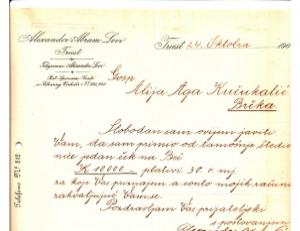 Alexander Abram Levi
Triest
Telegramme: Alexander Levi
Triest 24. Oktobra 190
Gosp.
Alija Aga Kučukalić
Brčka
Slobodan sam ovijem javiti
Vam, da sam primio od tamošnje štedio
nice jedan ček na Beč
K 10000.- plativi 30. o. mj
za koje Vas priznajem a conto mojih računa
zahvaljujuć Vam se.
Pozdravljam Vas prijateljski
s poštovanjem
Telefono Nº 812